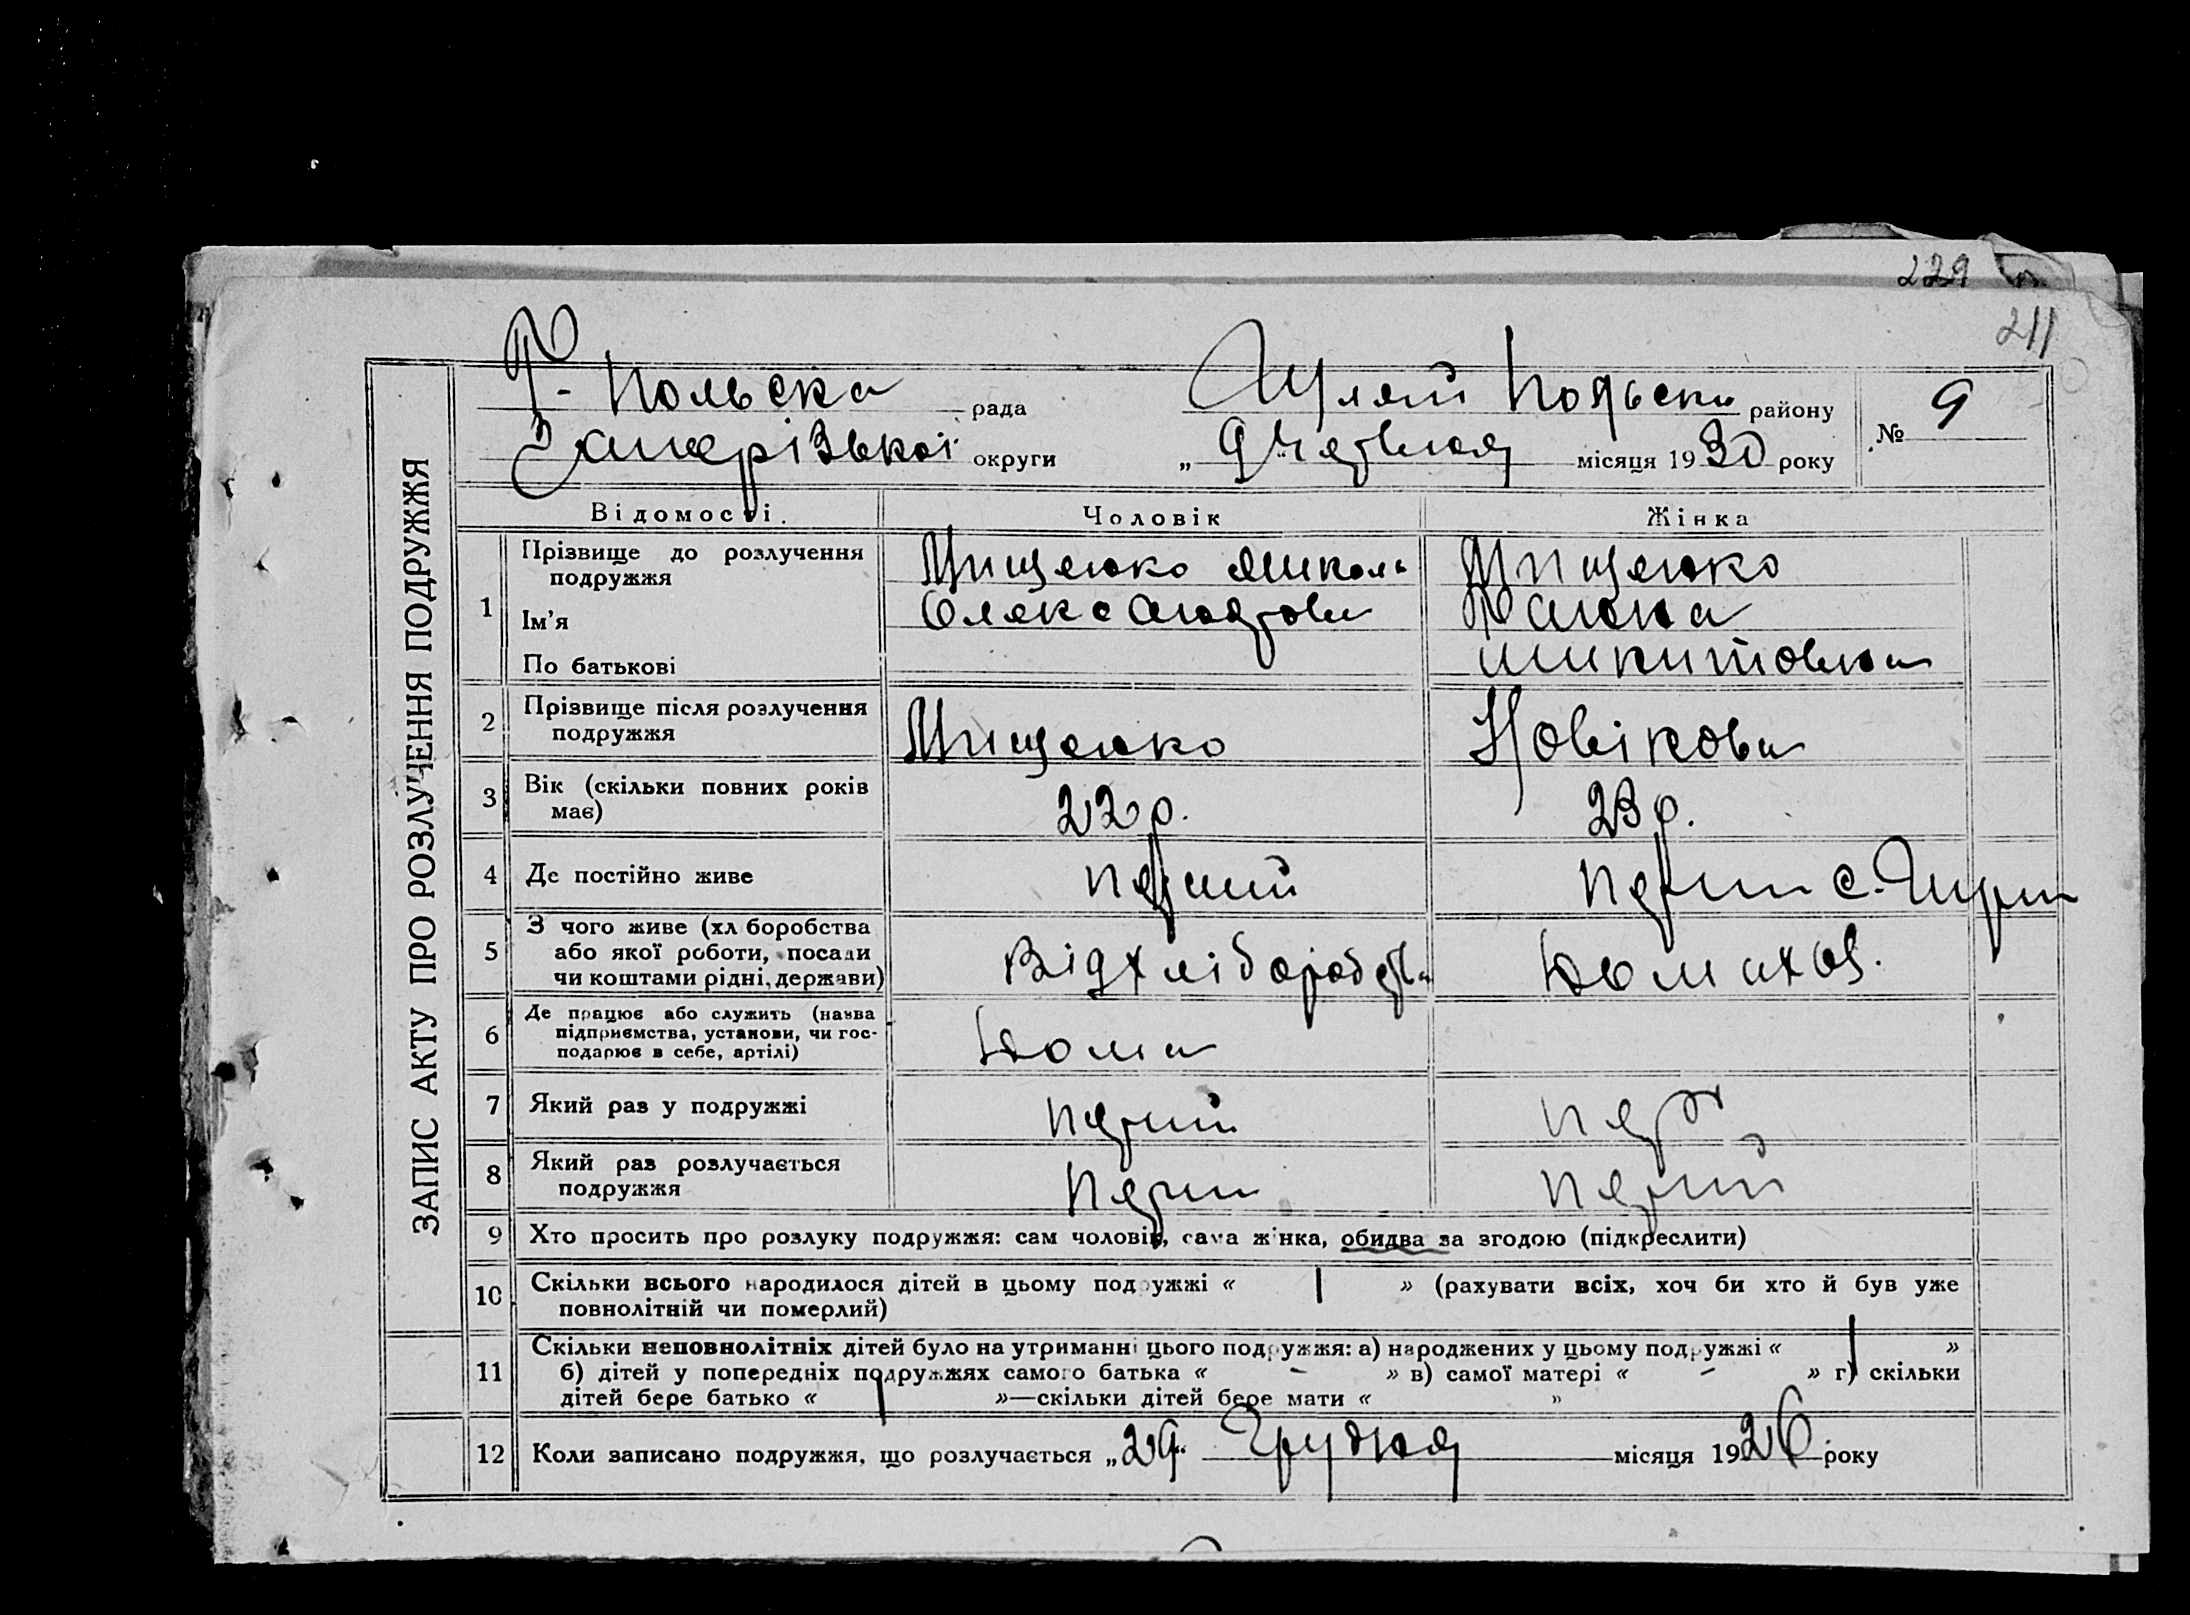 229
211
ЗАПИС АКТУ ПРО РОЗЛУЧЕННЯ ПОДРУЖЖЯ
Г. Польска рада Гуляй Польськ району № 9
Запорізької округи „ 9 місяця 1930 року
Відомості. Чоловік Жінка
1 Прізвище до розлучення подружжя Мищенко Микола Мищенко
Ім'я Олександров Ганна
По батькові Микитовна
2 Прізвище після розлучення подружжя Мищенко Новікова
3 Вік (скільки повних років має) 22 р. 23 р.
4 Де постійно живе с.
5 З чого живе (хл боробства або якої роботи, посади чи коштами рідні, держави) Від хліборобств Домахоз.
6 Де працює або служить (назва підприємства, установи, чи господарює в себе, артілі) Дома
7 Який раз у подружжі перший пер
8 Який раз розлучається подружжя
9 Хто просить про розлуку подружжя: сам чоловік, сама жінка, обидва за згодою (підкреслити)
10 Скільки всього народилося дітей в цьому подружжі « 1 » (рахувати всіх, хоч би хто й був уже
повнолітній чи померлий)
11 Скільки неповнолітніх дітей було на утриманні цього подружжя: а) народжених у цьому подружжі « 1 »
б) дітей у попередніх подружжях самого батька « – » в) самої матері « – » г) скільки
дітей бере батько « 1 »—скільки дітей бере мати « »
12 Коли записано подружжя, що розлучається „29 Грудня місяця 1926 року